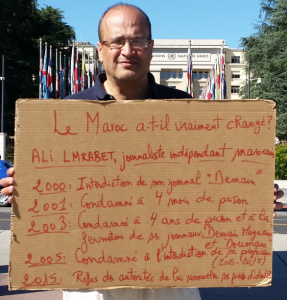 UNITED NATIONS
Le Maroc a-t-il vraiment changé?
ALI LMRABET, journaliste indépendant marocain
2000: Interdiction de son journal "Demain"
2001: Condamné à 4 mois de prison
2003: Condamné à 4 ans de prison et à la
fermeture de ses journaux, Demain Magazine
et Doumane
2005: Condamné à l'interdiction de sa profession
(2005-2015)
2015: Refus des autorités de lui renouveler ses pièces d'identité